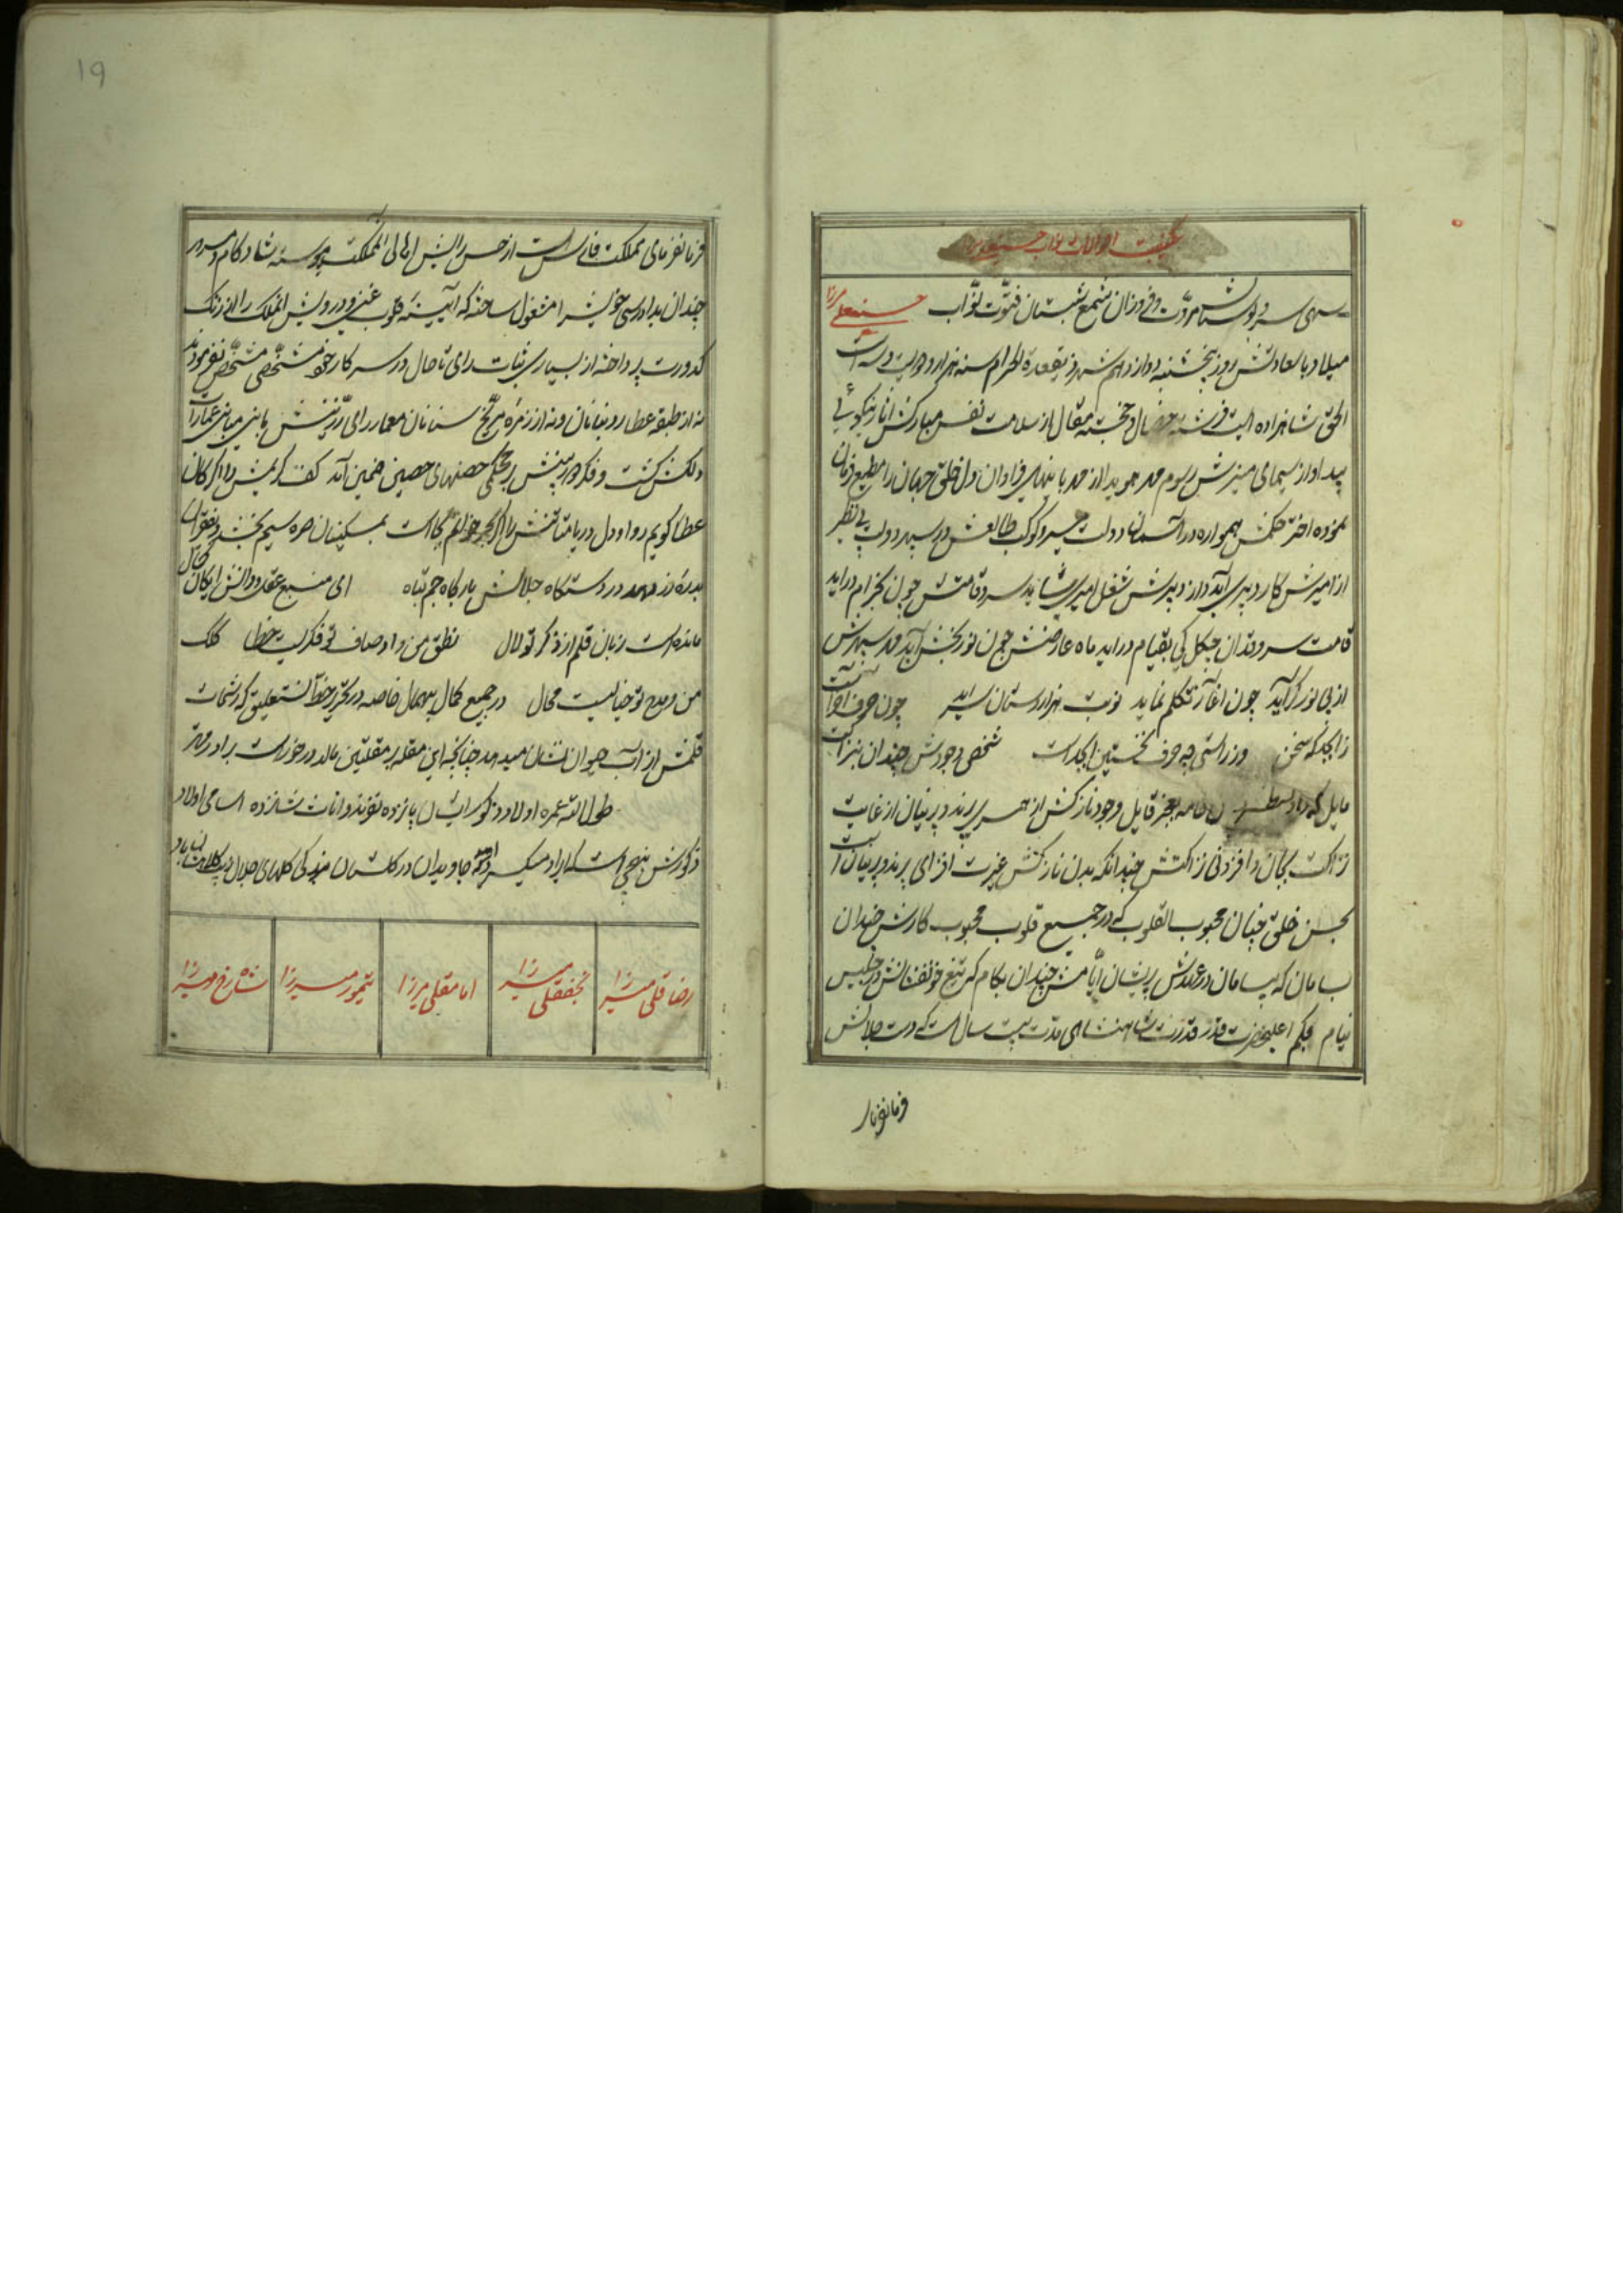 کیفیت احوالات نواب حسینعلی میرزا
سهی سرو بوستان مروّت و فروزان شمع شبستان فتوّت نوّاب حسینعلی میرزا
میلاد با سعادتش روز پنجشنبه دوازدهم شهر ذیقعدة الحرام سنه هزار و دویست و سه است
الحق شاهزاده ایست فرشته خصال و خجسته مقال از سلامت نفس مبارکش آثار نیکوئی
پیدا و از سیمای منیرش رسوم هویدا از فراوان دل خلق جهان را مطیع فرمان
نموده اختر حکمش همواره در آسمان دولت و کوکب طالعش در سپهر دولت بی نظیر
از امیرش کار دبیری آید و از دبیرش شغل امیری شاید سرو قامتش چون بخرام دراید
قامت سرو قدان چگل کی بقیام دراید ماه عارضش چون نوربخش آید سپهرش
از بی نور گراید چون آغاز تکلم نماید نوبت هزار دستان سراید چون
ز ابجد که سخن ورزاستی چه حرف نخستین ابجد است شخص وجودش چندان
مایل که بعجز قایل وجود نازکش از حریر پرند و پرنیان از غایت
نزاکت بجان و افزونی نزاکتش چندانکه بدن نازکش غیرت افزای پرند و پرنیان است
بحسن خلق چنان محبوب القلوب که در جمیع قلوب محبوب کارش چندان
بسامان که بیسامان در عهدش پریشان ایّامش چندان بکام که تیغ خونفشانش در حبس
نیام بحکم اعلیحضرت قدر قدرت شاهنشاهی مدّت بیست سال است که دست جلالش
فرمانفرمای
19
فرمانفرمای مملکت فارس است از حسن رایش اهالی المملکت پیوسته شاد کام و مسرور
چندان بدادرسی خویش را مشغول ساخته که آیینه قلوب غنی و درویش المملکت را از زنگ
کدورت پرداخته از بسیاری ثبات رای تا حال در سرکار خود مشخّصی مشخّص نفرموده
نه از طبقه عطارد بنانان و نه از زمره مرّیخ سنانان معمار رای رزینش بانی مبانی عمارات
دلکش گشت و فکر دوربینش بمحکمی حصنهای حصین ضمین آمد کف کریمش را اگر کان
عطا گویم روا و دل دریا مثالش را اگر بحر خوانم بجاست بمسکینان صره سیم بخشد و بفقرا
بدره زر دهد در دستگاه جلالش بارگاه جم تباه ای منبع عقل و دانش و کان کمال
مانده است زبان قلم از ذکر تو لال نطق من و اوصاف تو فکریست خطا کلک
من و مدح تو خیالیست محال در جمیع کمال بیهمال خاصه در تحریر خط نستعلیق که رشحات
قلمش از آب حیوان نشان میدهد چنانچه این مقله بر مقلتین مالد در خور است برادر مهتر
طول الله عمره اولاد ذکور ایشان پانزده نفرند و اناث شانزده اسامی اولاد
ذکورش بنهجی است که ایراد میگردد جاویدان در گلستان زندگی گلهای جلال
رضاقلی میرزا
نجفقلی میرزا
امامقلی میرزا
تیمور میرزا
شاهرخ میرزا